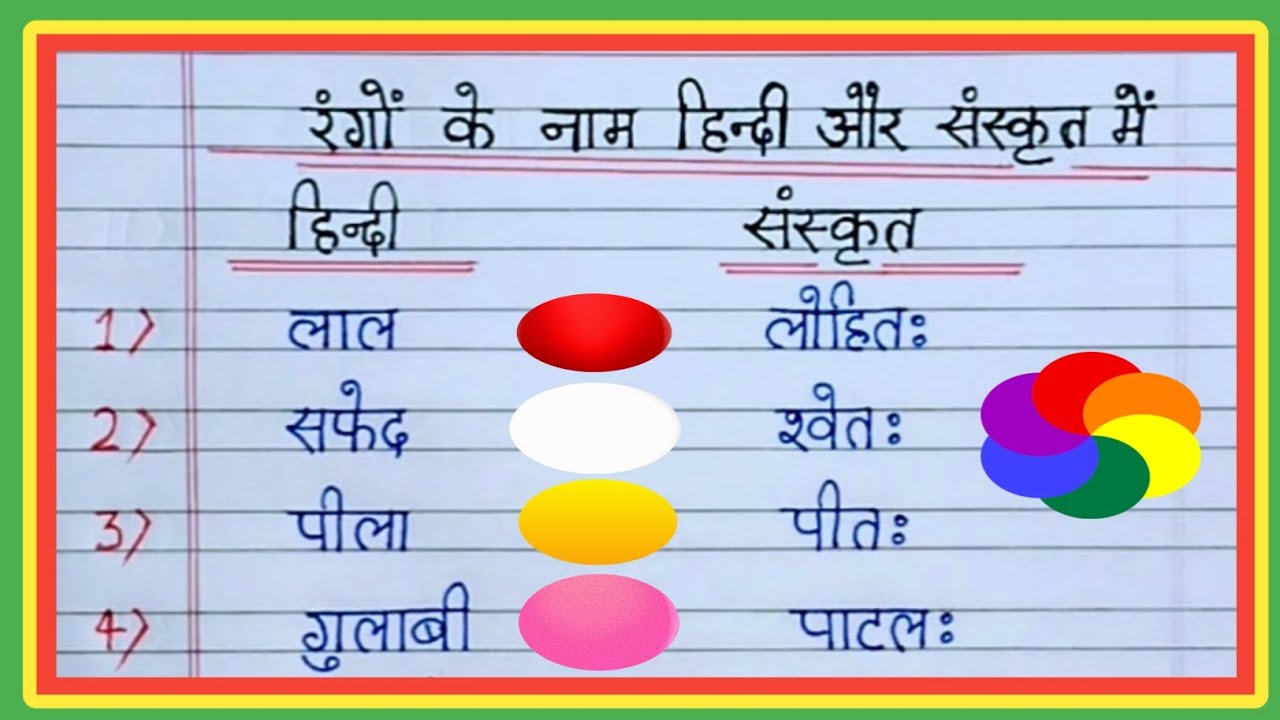 रंगों के नाम हिन्दी और संस्कृत में
हिन्दी संस्कृत
1) लाल लोहितः
2) सफेद श्वेतः
3) पीला पीतः
4) गुलाबी पाटलः